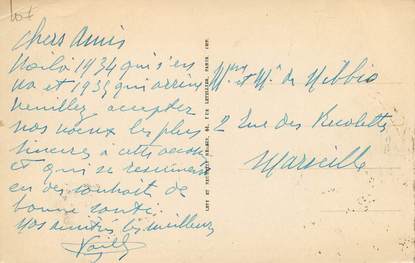 Chers Amis
Voilà 1934 qui s'en
va et 1935 qui arrive
veuillez accepter
nos voeux les plus
sincères à cette occasion
et qui se resument
en des souhait de
bonne santé.
Nos amitiés les meilleures
Mme et Mr de Nibbio
2 Rue des Recolettes
Marseille
LEVY ET NEURDEIN RÉUNIS, 44, RUE LETELLIER, PARIS